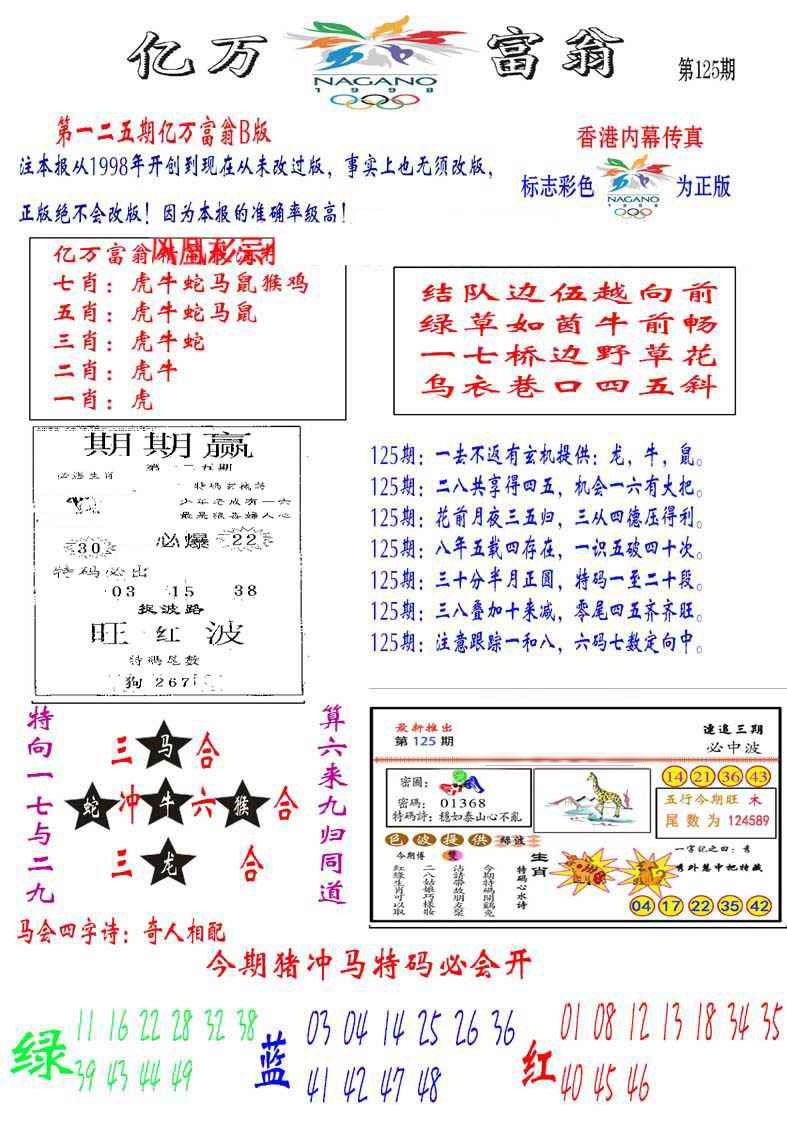 亿万富翁
NAGANO
1998
第125期
第一二五期亿万富翁B版
香港内幕传真
注本报从1998年开创到现在从未改过版，事实上也无须改版，
标志彩色
NAGANO
1998
为正版
正版绝不会改版！因为本报的准确率级高！
亿万富翁
七肖：虎牛蛇马鼠猴鸡
五肖：虎牛蛇马鼠
三肖：虎牛蛇
二肖：虎牛
一肖：虎
结队边伍越向前
绿草如茵牛前畅
一七桥边野草花
乌衣巷口四五斜
期期赢
第一二五期
必送生肖
少年老成有一六
30
必爆
22
特码必出
03 15 38
捉波路
旺红波
特码尾数
狗 267
125期：一去不返有玄机提供：龙，牛，鼠。
125期：二八共享得四五，机会一六有大把。
125期：花前月夜三五归，三从四德压得利。
125期：八年五载四存在，一识五破四十次。
125期：三十分半月正圆，特码一至二十段。
125期：三八叠加十来减，零尾四五齐齐旺。
125期：注意跟踪一和八，六码七数定向中。
特向一七与二九
三马合
蛇冲牛六猴合
三龙合
算六来九归同道
最新推出
第125期
連追三期
必中波
密圖：
密碼：01368
特码詩：穩如泰山心不亂
14 21 36 43
五行今期旺 木
尾数为 124589
色波提供 綠波
今期博
雙
生肖
特码心水诗
今期特碼開鷄兔
沾請帶故朋友聚
二八姑娘巧樣妝
紅綠生肖可以取
一字記之曰：秀
秀外慧中把特藏
04 17 22 35 42
马会四字诗：奇人相配
今期猪冲马特码必会开
绿
11 16 22 28 32 38
39 43 44 49
蓝
03 04 14 25 26 36
41 42 47 48
红
01 08 12 13 18 34 35
40 45 46